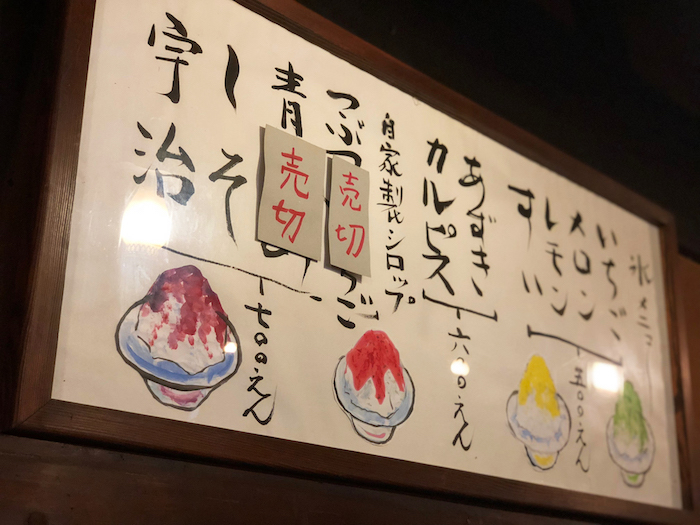 氷メニュー
いちご
メロン
レモン
すい
五〇〇えん
あずき
カルピス
六〇〇えん
自家製シロップ
つぶつ
ご
売切
青
売切
しそ
宇治
七〇〇えん